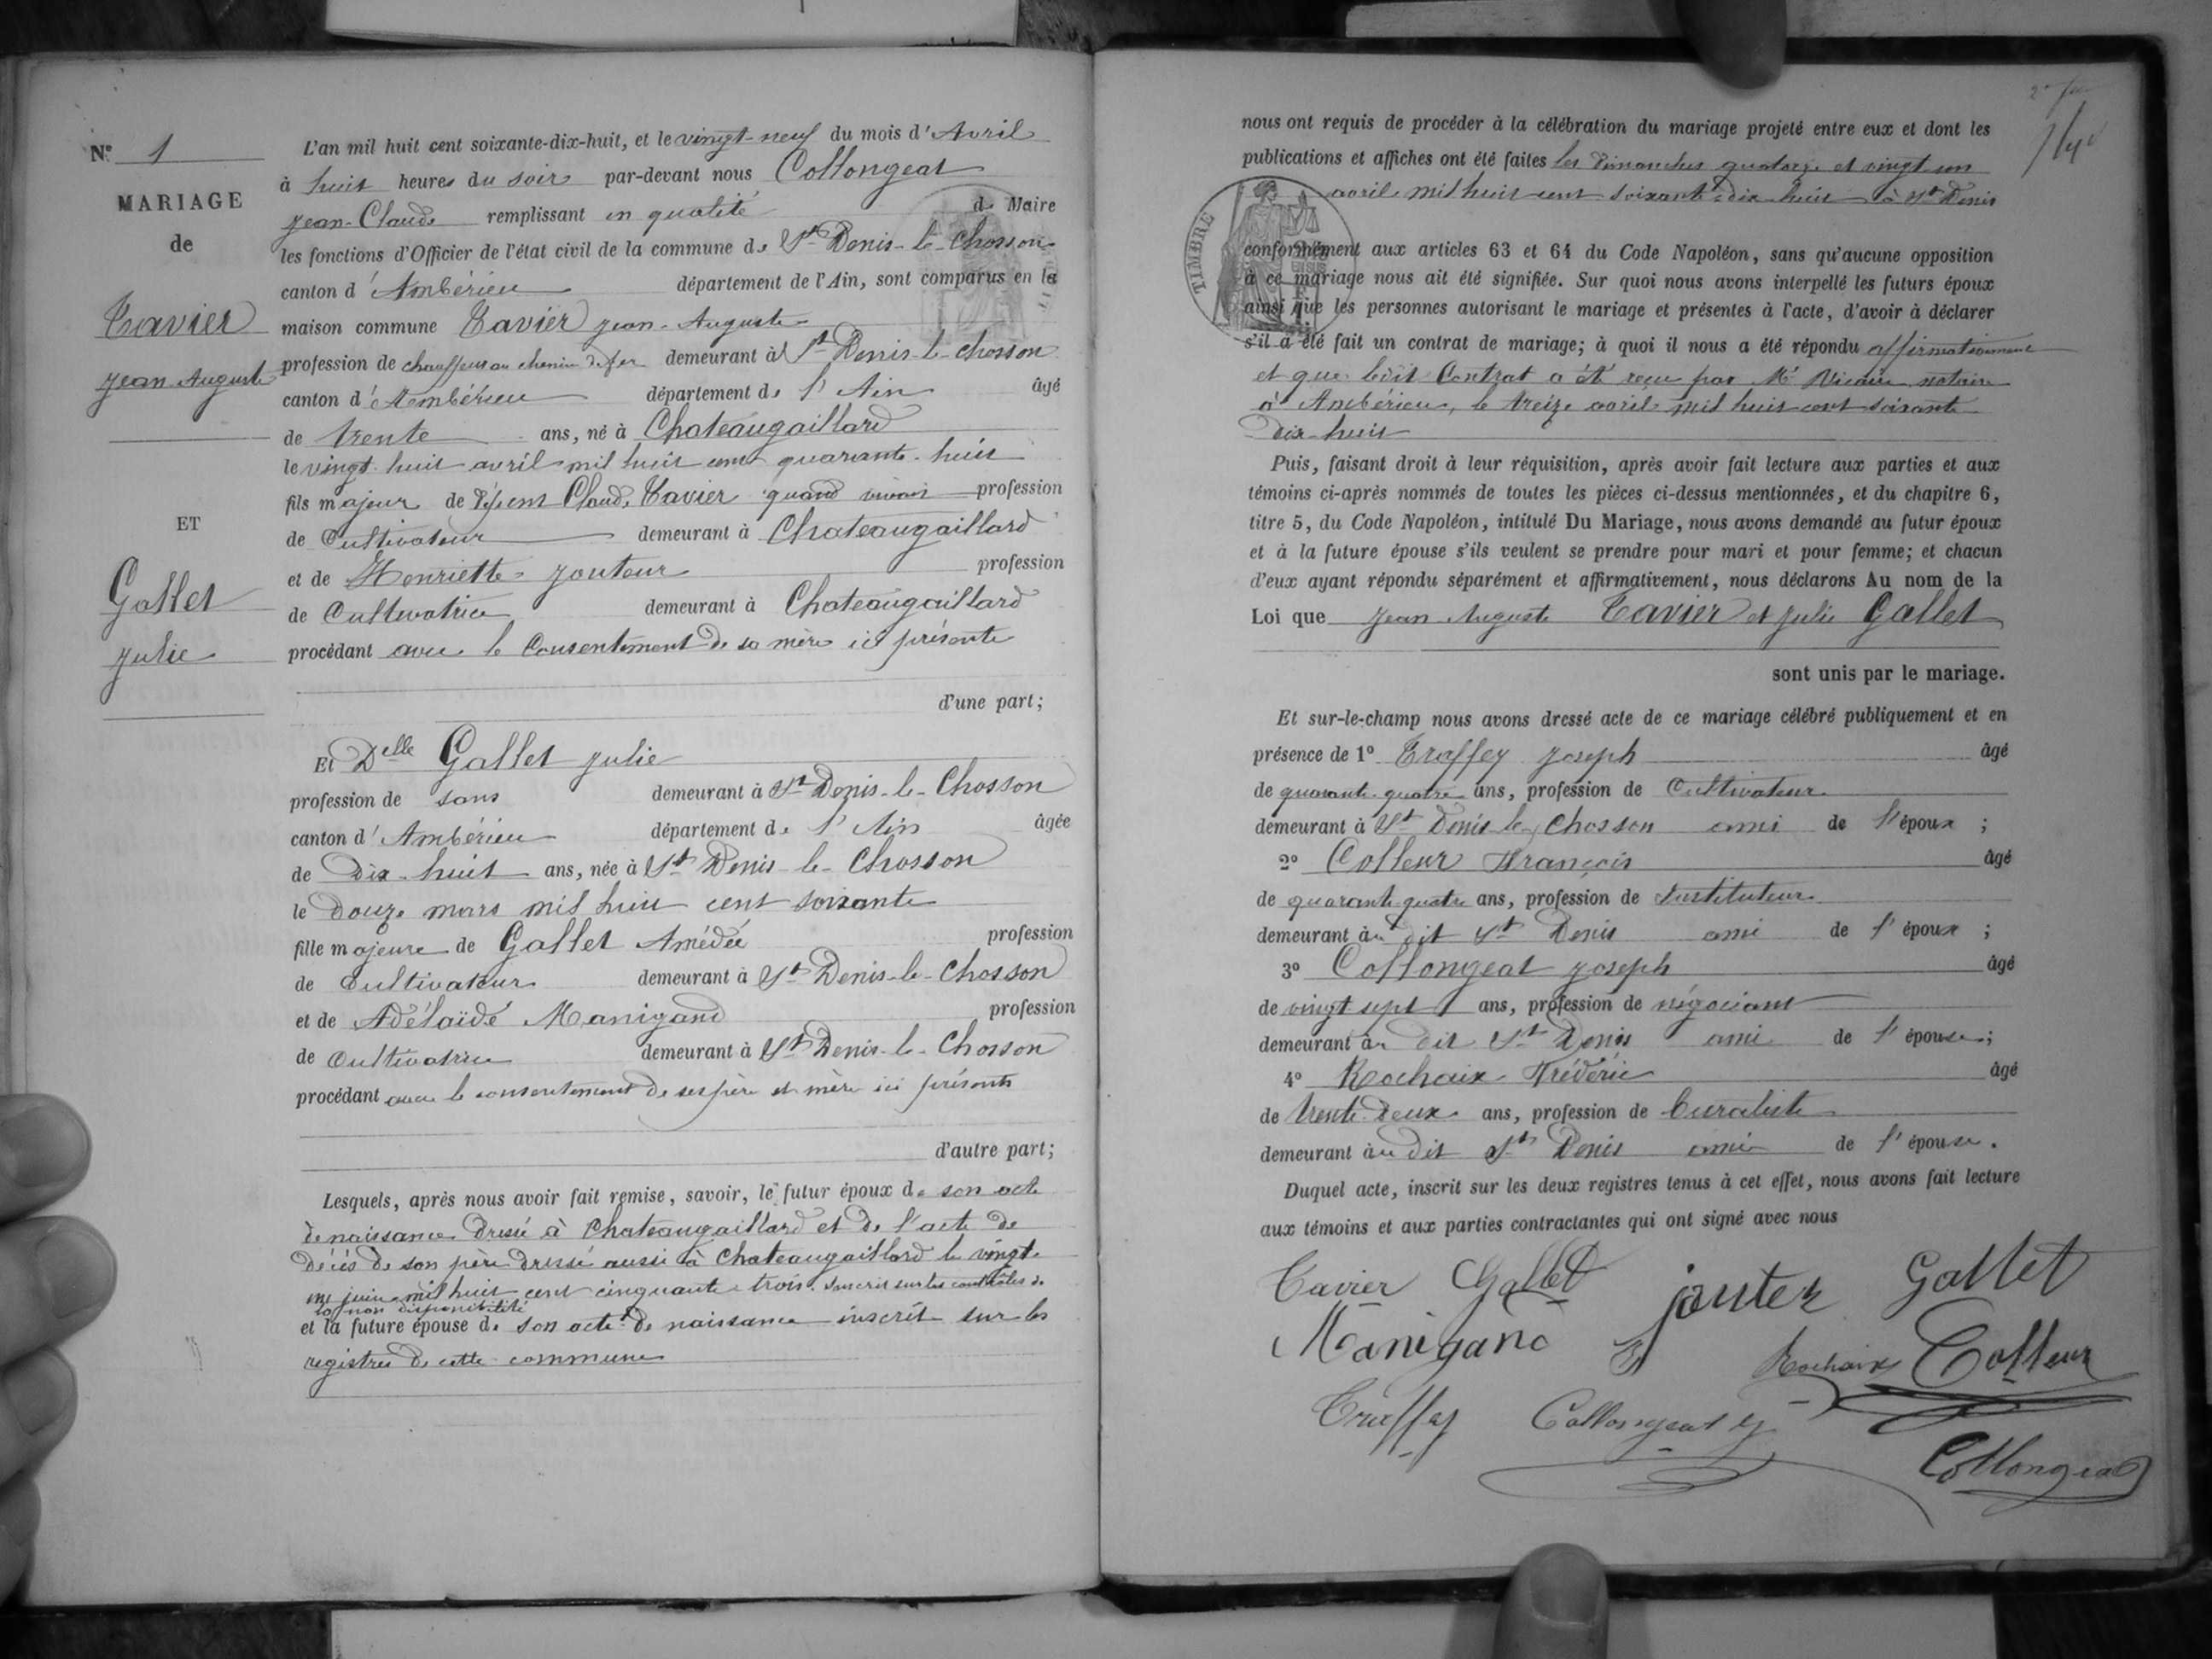 N° 1
MARIAGE
de
Tavier
Jean Auguste
ET
Gallet
Julie
L'an mil huit cent soixante-dix-huit, et le vingt-neuf du mois d'Avril
à huit heures du soir par-devant nous Collongeat
Jean-Claude remplissant en qualité de Maire
les fonctions d'Officier de l'état civil de la commune de St Denis-le-Chosson
canton d'Ambérieu département de l'Ain, sont comparus en la
maison commune Tavier Jean-Auguste
profession de chauffeur au chemin de fer demeurant à St Denis-le-Chosson
canton d'Ambérieu département de l'Ain âgé
de trente ans, né à Chateaugaillard
le vingt-huit avril mil huit cent quarante-huit
fils majeur de défunt Claude Tavier quand vivait profession
de Cultivateur demeurant à Chateaugaillard
et de Henriette Jouteur profession
de Cultivatrice demeurant à Chateaugaillard
procédant avec le Consentement de sa mère ici présente
d'une part;
Et Delle Gallet Julie
profession de sans demeurant à St Denis-le-Chosson
canton d'Ambérieu département de l'Ain âgée
de Dix-huit ans, née à St Denis-le-Chosson
le Douze mars mil huit cent soixante
fille majeure de Gallet Amédée profession
de Cultivateur demeurant à St Denis-le-Chosson
et de Adélaïde Manigand profession
de Cultivatrice demeurant à St Denis-le-Chosson
procédant avec le consentement de ses père et mère ici présents
d'autre part;
Lesquels, après nous avoir fait remise, savoir, le futur époux de son acte
de naissance dressé à Chateaugaillard et de l'acte de
décès de son père dressé aussi à Chateaugaillard le vingt
un juin mil huit cent cinquante trois. Inscrit sur les contrôles de
la non disponibilité
et la future épouse de son acte de naissance inscrit sur les
registres de cette commune
nous ont requis de procéder à la célébration du mariage projeté entre eux et dont les
publications et affiches ont été faites les Dimanches quatorze et vingt un
avril mil huit cent soixante-dix-huit à St Denis
TIMBRE
conformément aux articles 63 et 64 du Code Napoléon, sans qu'aucune opposition
à ce mariage nous ait été signifiée. Sur quoi nous avons interpellé les futurs époux
ainsi que les personnes autorisant le mariage et présentes à l'acte, d'avoir à déclarer
s'il a été fait un contrat de mariage; à quoi il nous a été répondu affirmativement
et que ledit Contrat a été reçu par Me Vicaire notaire
à Ambérieu, le treize avril mil huit cent soixante
dix-huit
Puis, faisant droit à leur réquisition, après avoir fait lecture aux parties et aux
témoins ci-après nommés de toutes les pièces ci-dessus mentionnées, et du chapitre 6,
titre 5, du Code Napoléon, intitulé Du Mariage, nous avons demandé au futur époux
et à la future épouse s'ils veulent se prendre pour mari et pour femme; et chacun
d'eux ayant répondu séparément et affirmativement, nous déclarons Au nom de la
Loi que Jean Auguste Tavier et Julie Gallet
sont unis par le mariage.
Et sur-le-champ nous avons dressé acte de ce mariage célébré publiquement et en
présence de 1° Traffey Joseph âgé
de quarante-quatre ans, profession de Cultivateur
demeurant à St Denis-le-Chosson ami de l'époux ;
2° Colleur François âgé
de quarante-quatre ans, profession de Instituteur
demeurant au dit St Denis ami de l'époux ;
3° Collongeat Joseph âgé
de vingt sept ans, profession de négociant
demeurant au dit St Denis ami de l'épouse ;
4° Rochaix Frédéric âgé
de trente-deux ans, profession de Buraliste
demeurant au dit St Denis ami de l'épouse.
Duquel acte, inscrit sur les deux registres tenus à cet effet, nous avons fait lecture
aux témoins et aux parties contractantes qui ont signé avec nous
Tavier Gallet jouter Gallet
Manigand Rochaix Colleur
Traffey Collongeat
Collongeat